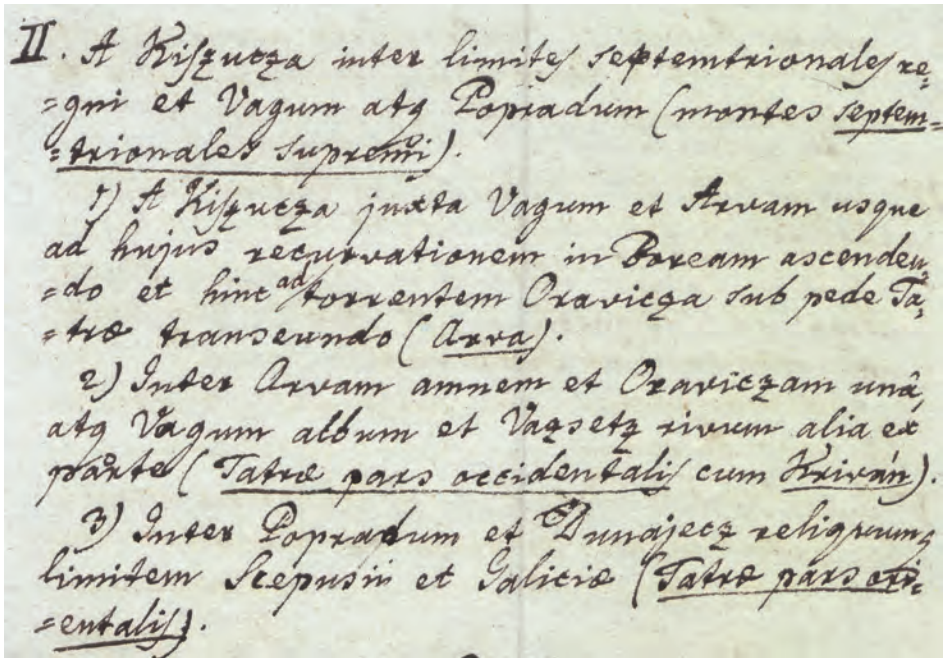 II. A Kiſzucza inter limiteſ septemtrionaleſ re=
=gni et Vagum atq Popradum (montes septem=
=trionales supremi).
1) A Kiſzucza juxta Vagum et Arvam usque
ad hujus recurvationem in Boream ascenden=
=do et hinc ad torrentem Oravicza sub pede Ta=
=træ transeundo (Arva).
2) Inter Arvam amnem et Oraviczam unâ,
atq Vagum album et Vazsetz rivum alia ex
parte (Tatræ pars occidentaliſ cum Kriván).
3) Inter Popradum et Dunajecz religuum,
limitem Scepusii et Galiciæ (Tatræ pars ori=
=entaliſ).